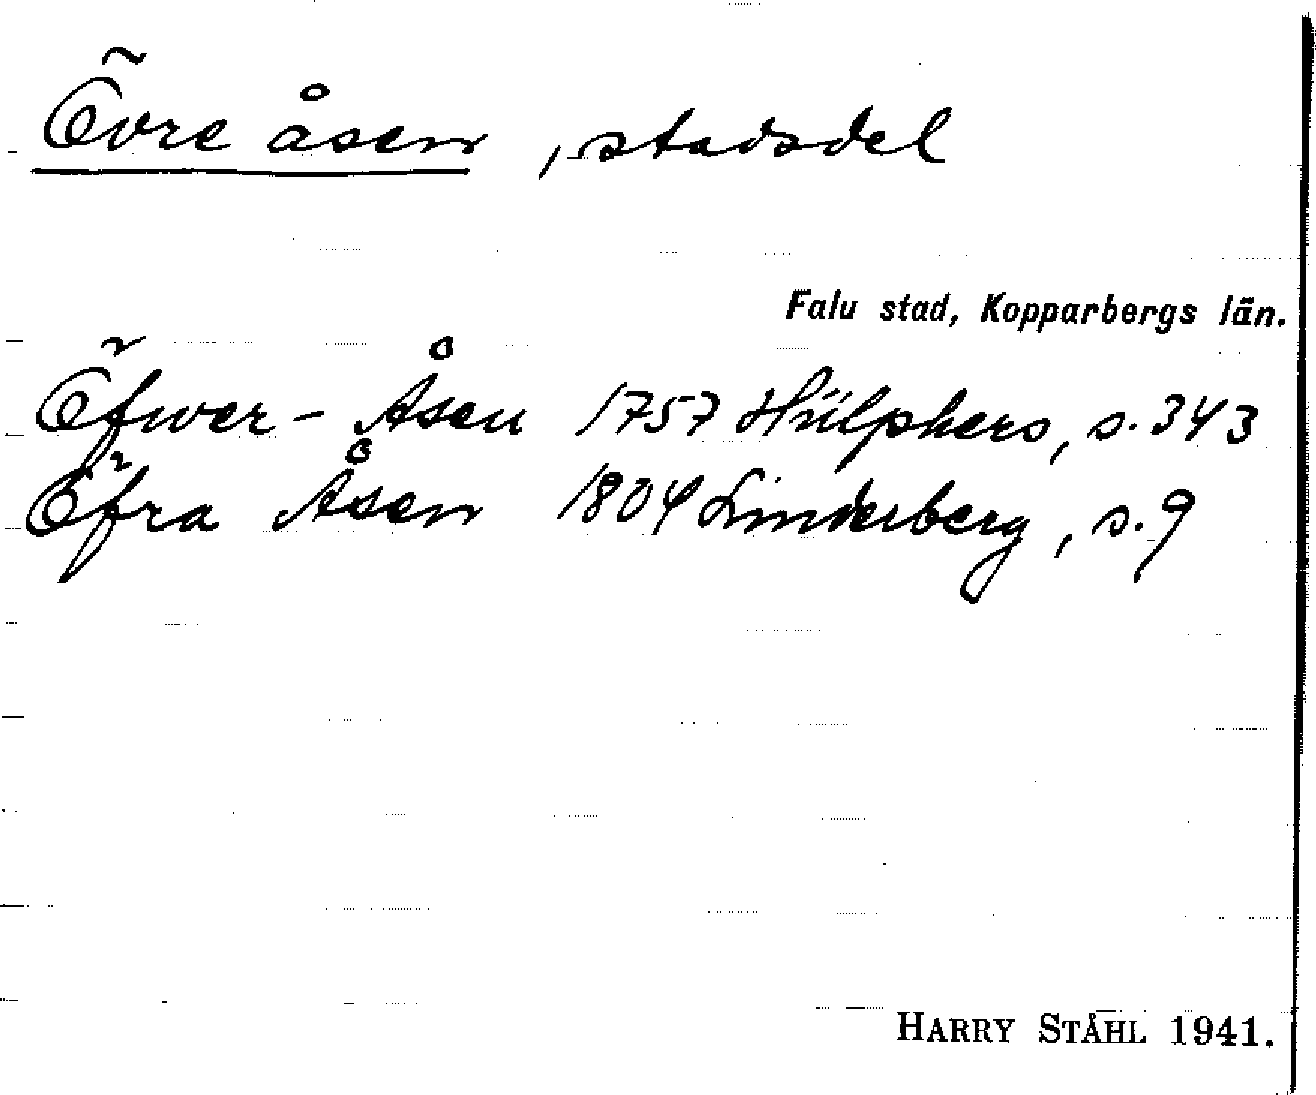 Övre åsen, stadsdel
Falu stad, Kopparbergs län.
Öfwer-Åsen 1757 Hülphers, s. 343
Öfra Åsen 1804 Linderberg, s. 9
HARRY STÅHL 1941.